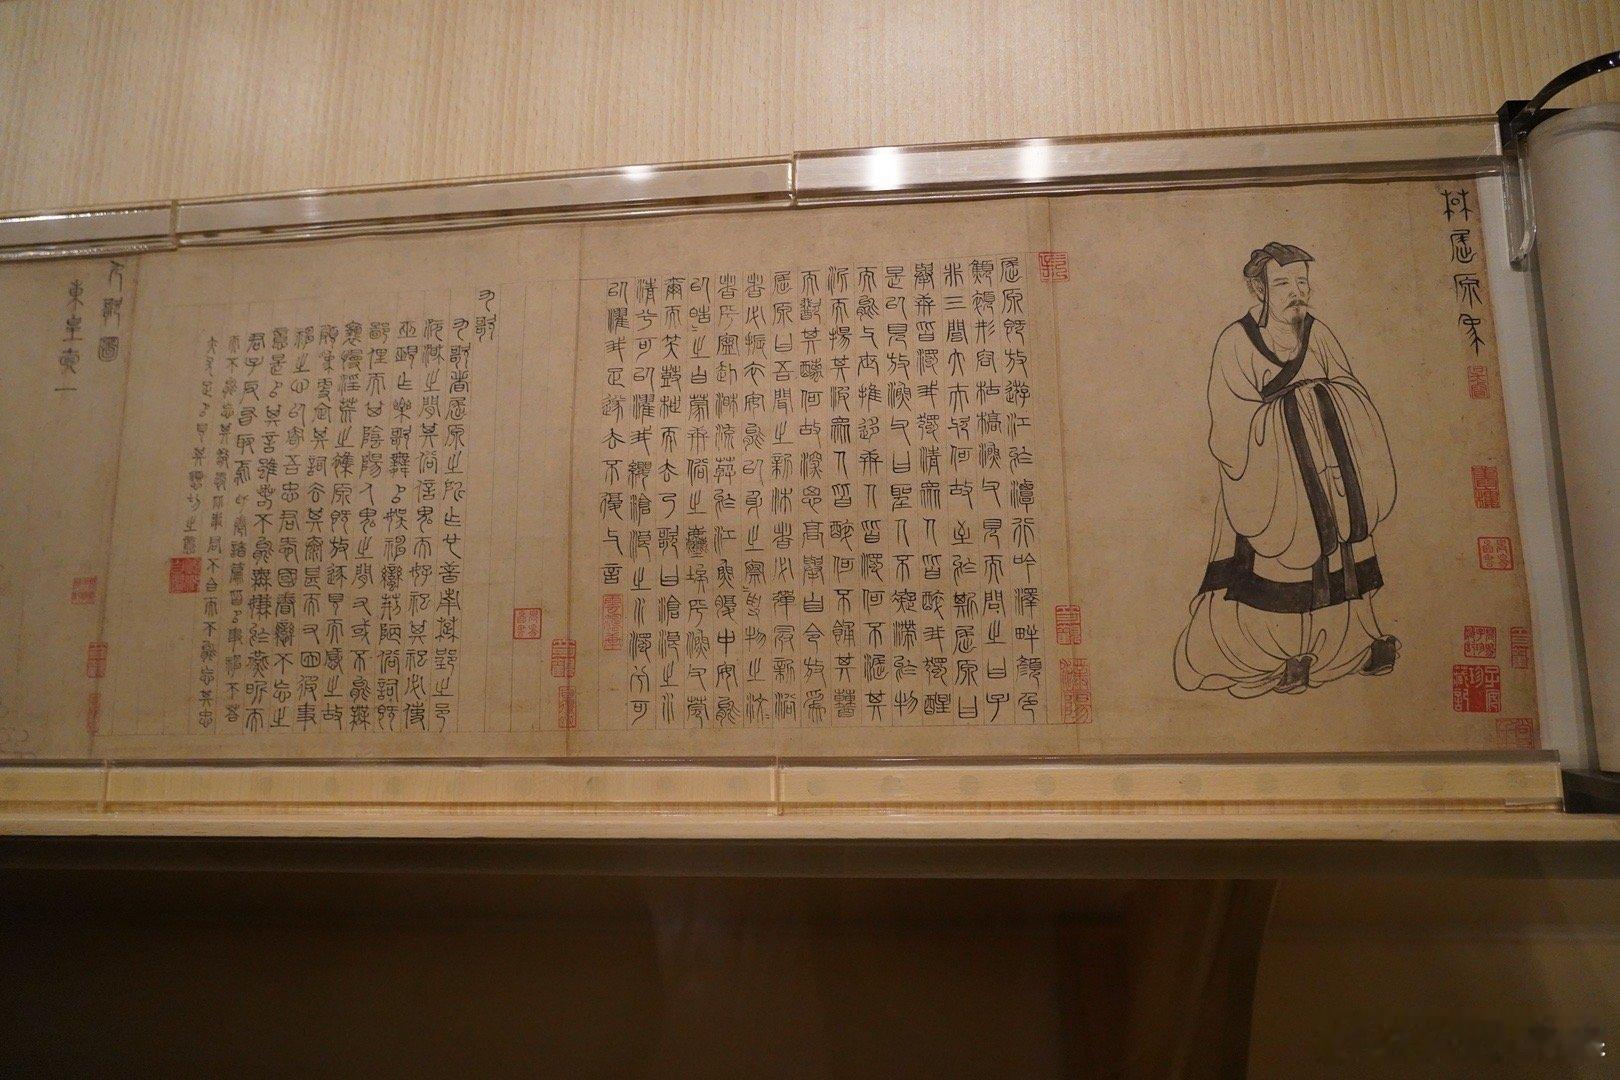 楚屈原象
屈原既放游江於潭行吟澤畔顏色
顦顇形容枯槁漁父見而問之曰子
非三閭大夫與何故至於斯屈原曰
舉世皆濁我獨清眾人皆醉我獨醒
是以見放漁父曰聖人不凝滯於物
而能與世推移世人皆濁何不淈其
泥而揚其波眾人皆醉何不餔其糟
而歠其醨何故深思高舉自令放為
屈原曰吾聞之新沐者必彈冠新浴
者必振衣安能以身之察察受物之汶汶
者乎寧赴湘流葬於江魚腹中安能
以皓皓之白蒙世俗之塵埃乎漁父莞
爾而笑鼓枻而去乃歌曰滄浪之水
清兮可以濯我纓滄浪之水濁兮可
以濯我足遂去不復與言
九歌
九歌者屈原之所作也昔南楚郢之邑
沅湘之間其俗信鬼而好祀其祀必使
巫覡作樂歌舞以娛神蠻荊陋俗詞既
鄙俚而其陰陽人鬼之間又或不能無
褻慢淫荒之雜原既放逐見而感之故
頗為更定其詞去其泰甚而又因彼事
神之心以寄吾忠君愛國眷戀不忘之
意是以其言雖若不能無嫌於燕昵而
君子反有取焉此卷諸篇皆以事神不荅
而不能忘其敬愛比事君不合而不能忘其忠
赤尤足以見其懇切之意
九歌圖
東皇太一